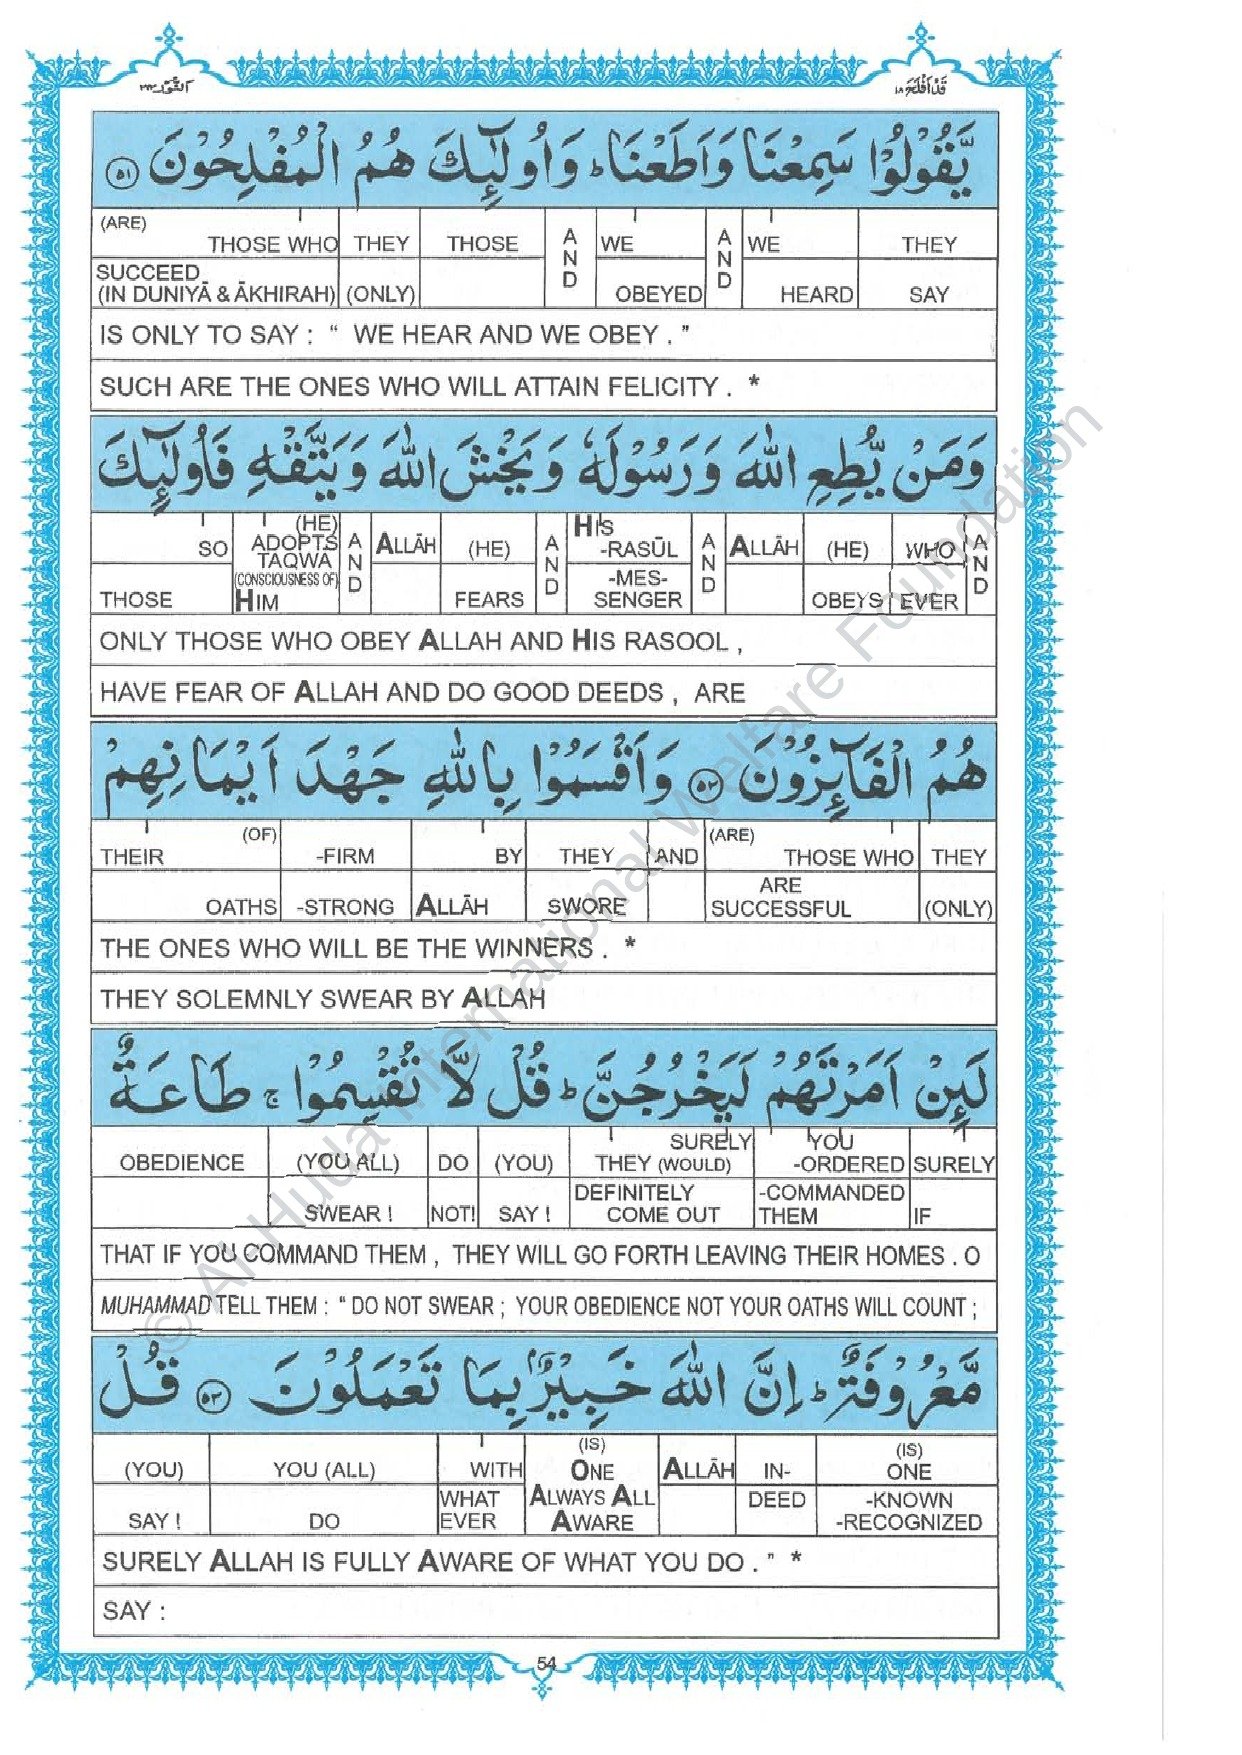 قَدْ اَفْلَحَ ١٨
اَلنُّوْر ٢٤
يَّقُوْلُوْا سَمِعْنَا وَاَطَعْنَا ؕ وَاُولٰٓئِكَ هُمُ الْمُفْلِحُوْنَ ﴿٥١﴾
(ARE) THOSE WHO THEY THOSE AND WE AND WE THEY
SUCCEED (IN DUNIYĀ & ĀKHIRAH) (ONLY) OBEYED HEARD SAY
IS ONLY TO SAY : “ WE HEAR AND WE OBEY . ”
SUCH ARE THE ONES WHO WILL ATTAIN FELICITY . *
وَمَنْ يُّطِعِ اللّٰهَ وَرَسُوْلَهٗ وَيَخْشَ اللّٰهَ وَيَتَّقْهِ فَاُولٰٓئِكَ
SO (HE) ADOPTS TAQWA AND ALLĀH (HE) AND HIS -RASŪL AND ALLĀH (HE) WHO AND
THOSE (CONSCIOUSNESS OF) HIM FEARS -MES- SENGER OBEYS EVER
ONLY THOSE WHO OBEY ALLAH AND HIS RASOOL ,
HAVE FEAR OF ALLAH AND DO GOOD DEEDS , ARE
هُمُ الْفَآئِزُوْنَ ﴿٥٢﴾ وَاَقْسَمُوْا بِاللّٰهِ جَهْدَ اَيْمَانِهِمْ
THEIR (OF) -FIRM BY THEY AND (ARE) THOSE WHO THEY
OATHS -STRONG ALLĀH SWORE ARE SUCCESSFUL (ONLY)
THE ONES WHO WILL BE THE WINNERS . *
THEY SOLEMNLY SWEAR BY ALLAH
لَئِنْ اَمَرْتَهُمْ لَيَخْرُجُنَّ ؕ قُلْ لَّا تُقْسِمُوْا ۚ طَاعَةٌ
OBEDIENCE (YOU ALL) DO (YOU) SURELY THEY (WOULD) YOU -ORDERED SURELY
SWEAR ! NOT! SAY ! DEFINITELY COME OUT -COMMANDED THEM IF
THAT IF YOU COMMAND THEM , THEY WILL GO FORTH LEAVING THEIR HOMES . O
MUHAMMAD TELL THEM : “ DO NOT SWEAR ; YOUR OBEDIENCE NOT YOUR OATHS WILL COUNT ;
مَّعْرُوْفَةٌ ؕ اِنَّ اللّٰهَ خَبِيْرٌۢ بِمَا تَعْمَلُوْنَ ﴿٥٣﴾ قُلْ
(YOU) YOU (ALL) WITH (IS) ONE ALLĀH IN- (IS) ONE
SAY ! DO WHAT EVER ALWAYS ALL AWARE DEED -KNOWN -RECOGNIZED
SURELY ALLAH IS FULLY AWARE OF WHAT YOU DO . ” *
SAY :
54
© Al-Huda International Welfare Foundation